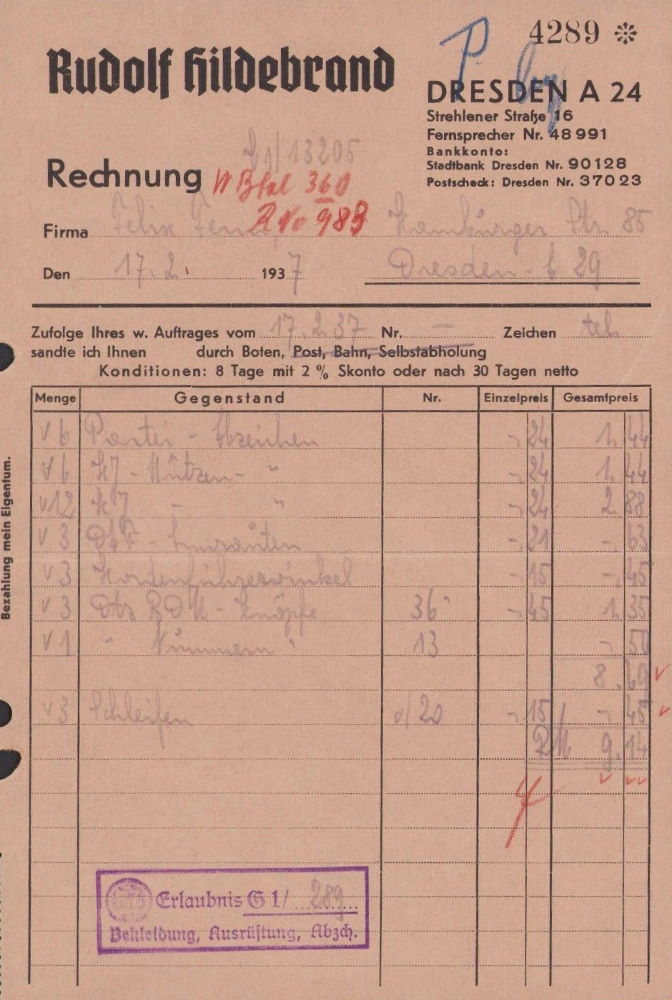 4289 ❊
Rudolf Hildebrand
DRESDEN A 24
Strehlener Straße 16
Fernsprecher Nr. 48 991
Bankkonto:
Stadtbank Dresden Nr. 90128
Postscheck: Dresden Nr. 37023
Rechnung
13205
360
983
Firma Felix Hamburger Str. 85
Den 17.2. 1937 Dresden - 29
Zufolge Ihres w. Auftrages vom 17.2.37 Nr. — Zeichen tel.
sandte ich Ihnen durch Boten, Post, Bahn, Selbstabholung
Konditionen: 8 Tage mit 2 % Skonto oder nach 30 Tagen netto
Menge Gegenstand Nr. Einzelpreis Gesamtpreis
6 Partei - Abzeichen -.24 1.44
6 HJ - Mützen - " -.24 1.44
12 HJ - " -.24 2.88
3 -.21 -.63
3 Hordenführerwinkel -.15 -.45
3 Dtz - Knöpfe 36" -.45 1.35
1 " Nummern " 13 -.50
8.69
3 Schleifen 20 -.15 -.45
RM 9.14
Erlaubnis G 1/ 289
Bekleidung, Ausrüstung, Abzch.
Bezahlung mein Eigentum.